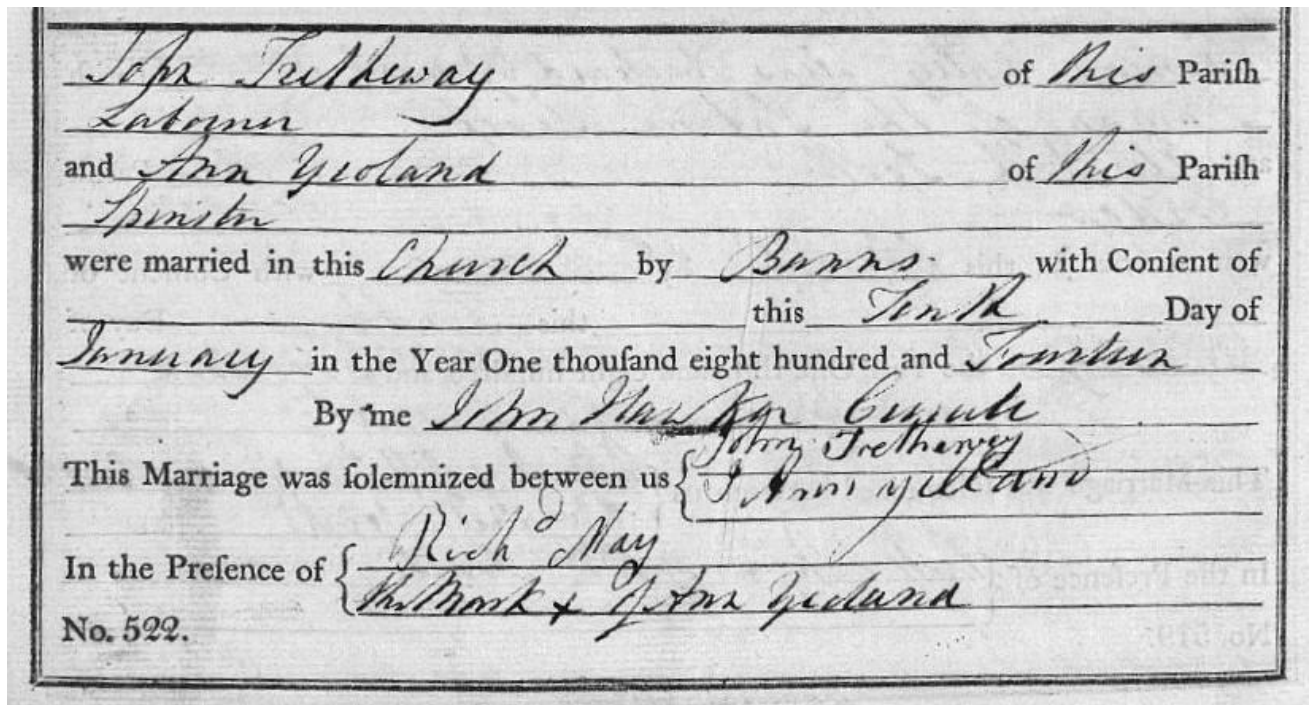 John Tretheway of this Pariſh
Laborner
and Ann Yeoland of this Pariſh
Spinster
were married in this Church by Banns with Conſent of
this Tenth Day of
January in the Year One thouſand eight hundred and Fourteen
By me John Hawker Curate
This Marriage was ſolemnized between us { John Tretharvey
I Ann yelland
In the Preſence of { Richd May
the Mark x of Ann Yeoland
No. 522.